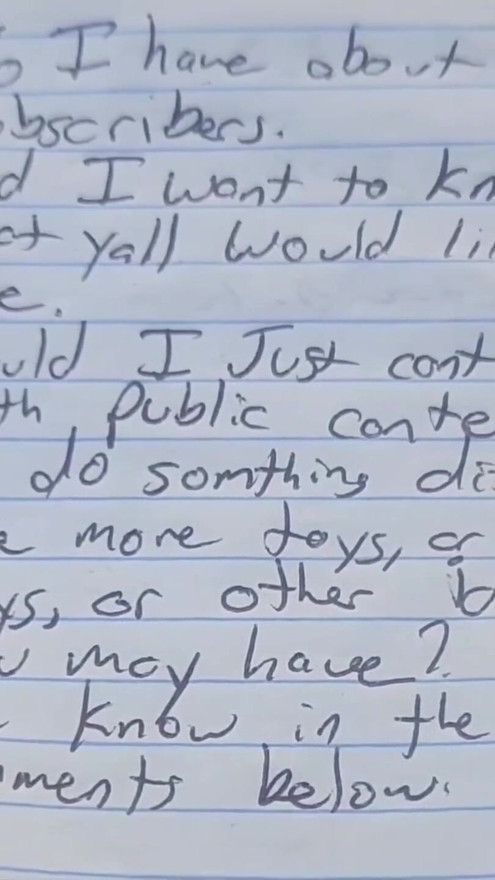 o I have about
bscribers.
d I want to kn
at yall would li
e.
uld I Just cont
th public conte
do somthing di
e more toys, or
ys, or other id
u may have?
know in the
ments below.